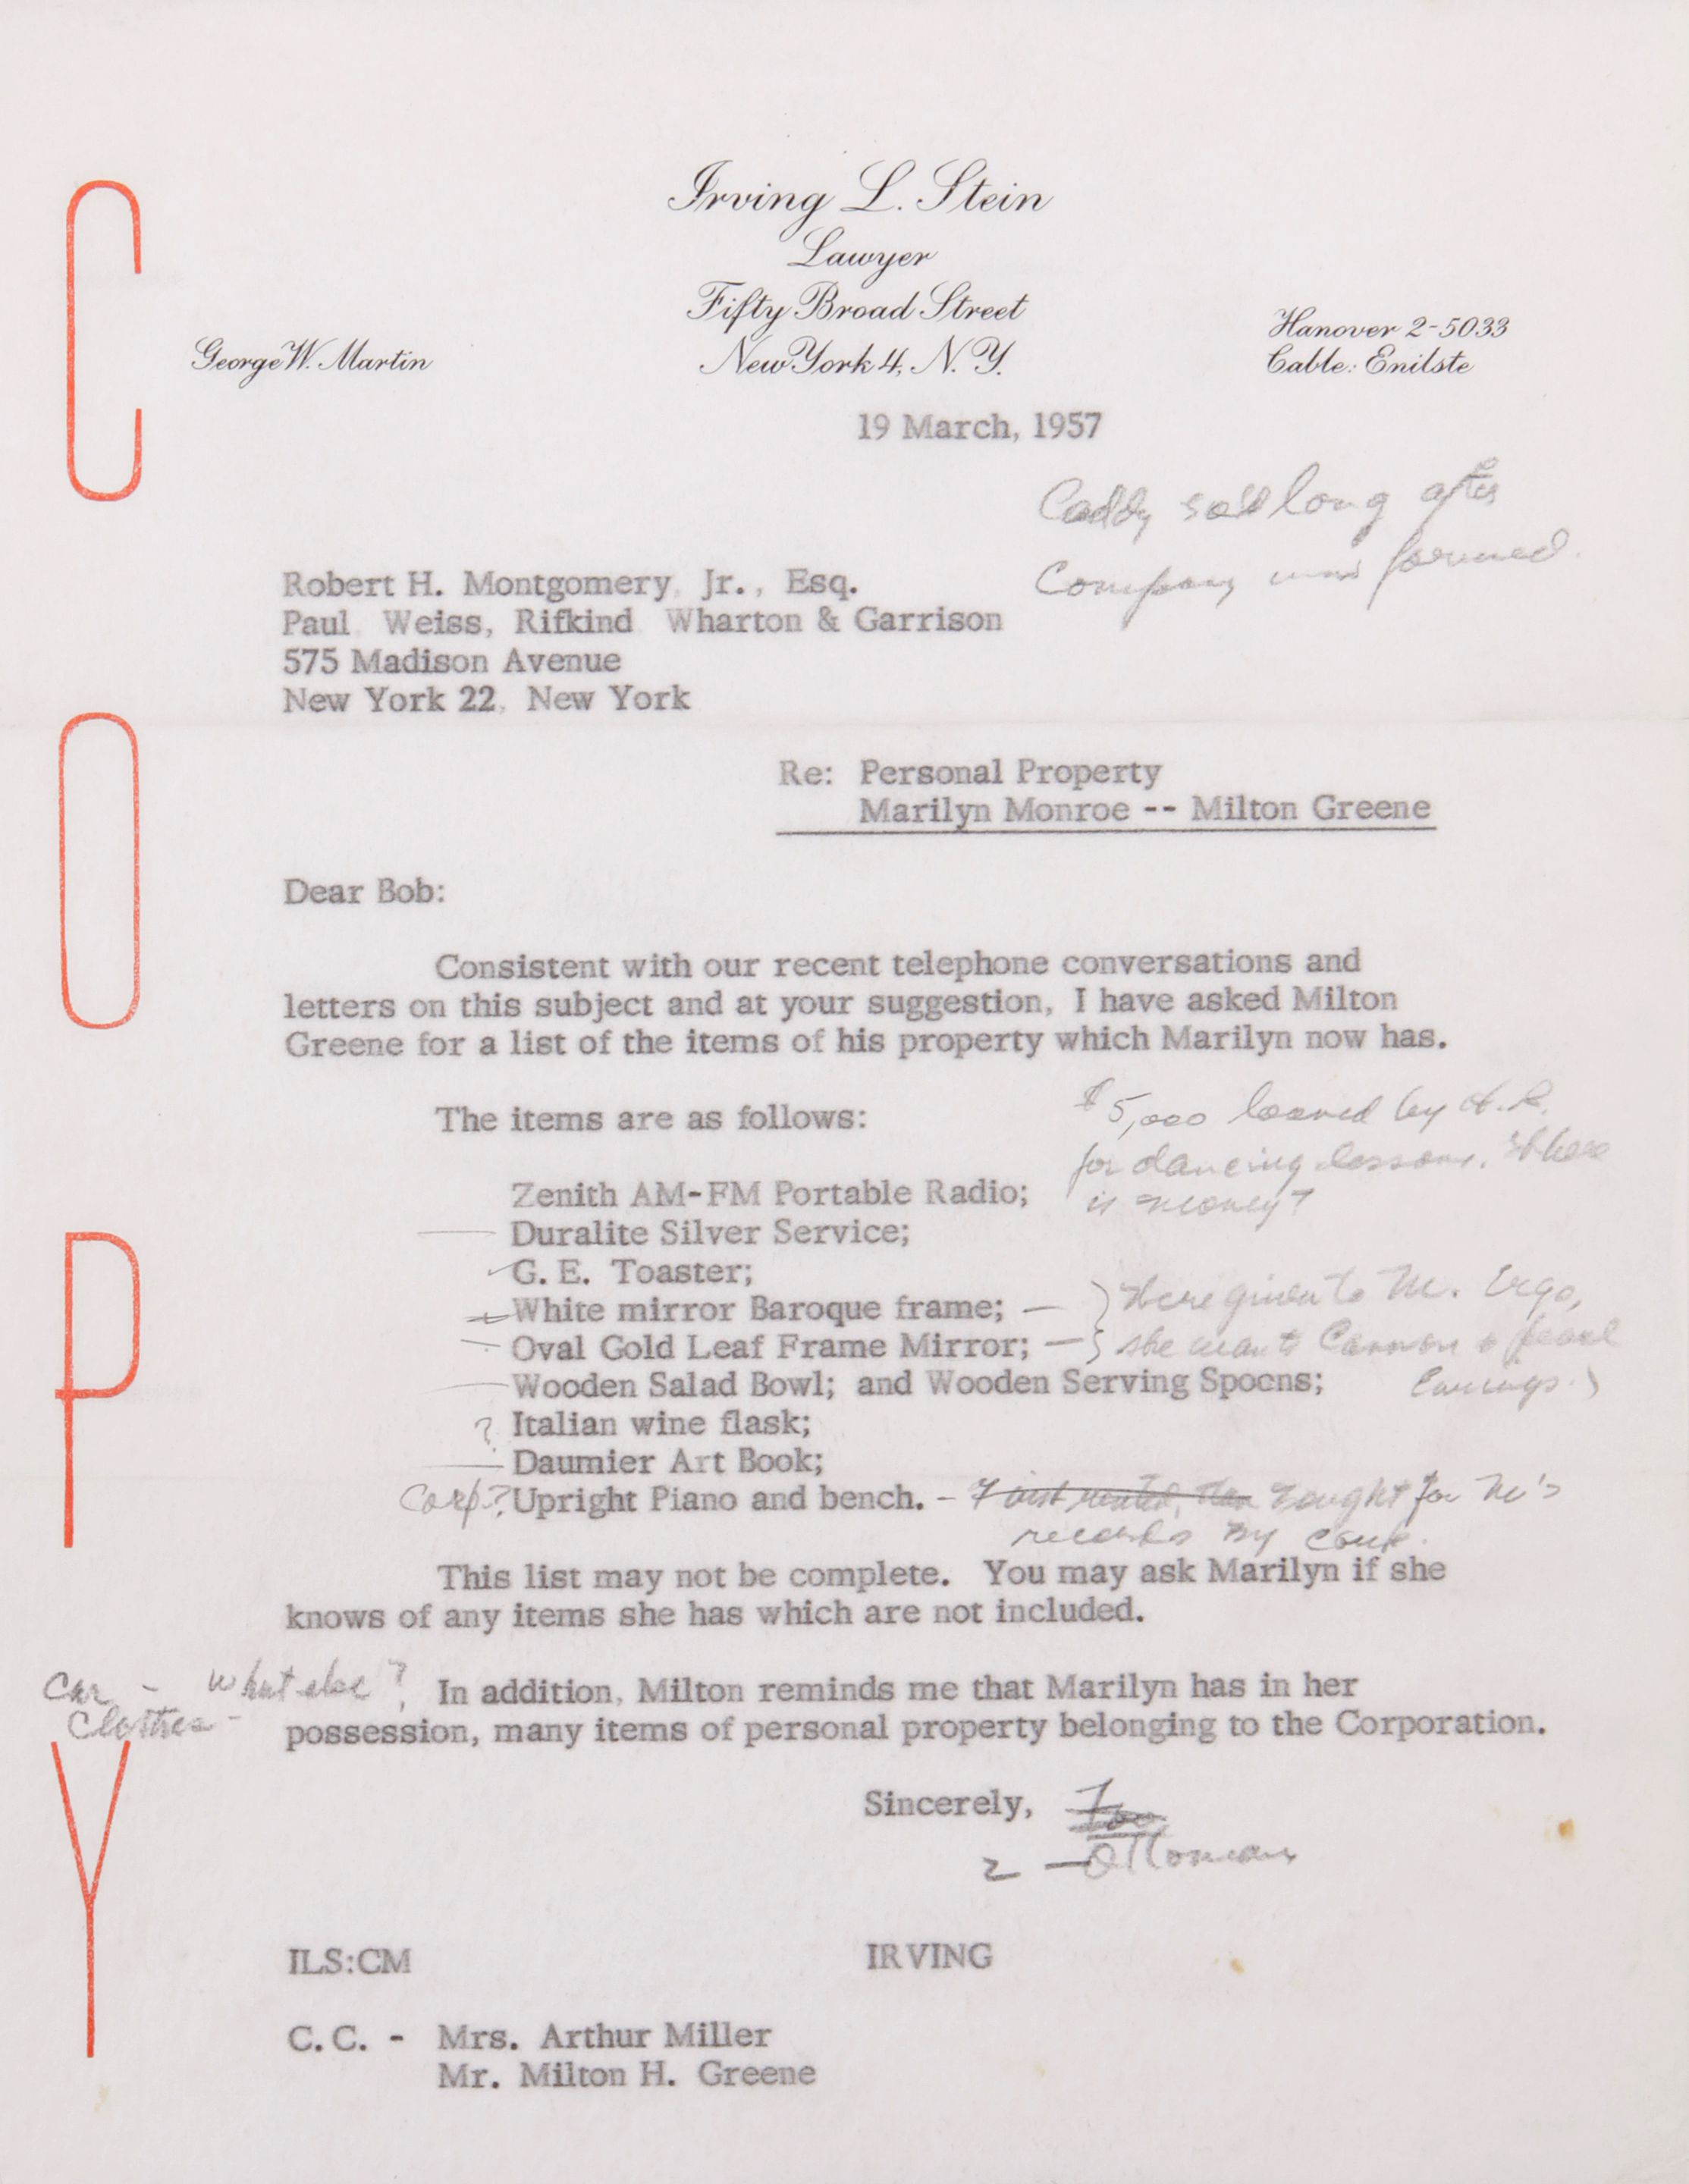 COPY
Irving L. Stein
Lawyer
Fifty Broad Street
George W. Martin
New York 4, N. Y.
Hanover 2-5033
Cable: Enilste
19 March, 1957
Caddy sold long after
Company was formed.
Robert H. Montgomery, Jr., Esq.
Paul, Weiss, Rifkind, Wharton & Garrison
575 Madison Avenue
New York 22, New York
Re: Personal Property
Marilyn Monroe -- Milton Greene
Dear Bob:
Consistent with our recent telephone conversations and
letters on this subject and at your suggestion, I have asked Milton
Greene for a list of the items of his property which Marilyn now has.
The items are as follows:
$5,000 loaned by
for dancing lessons. Where
is money?
Zenith AM-FM Portable Radio;
Duralite Silver Service;
G. E. Toaster;
White mirror Baroque frame; —
Oval Gold Leaf Frame Mirror; —
Were given to M. Ergo,
she wants Cannon & pearl
Earrings.)
Wooden Salad Bowl; and Wooden Serving Spoons;
? Italian wine flask;
Daumier Art Book;
Corp? Upright Piano and bench. - First rented, then bought for M's
records by Corp.
This list may not be complete. You may ask Marilyn if she
knows of any items she has which are not included.
Car - What else?
Clothes -
In addition, Milton reminds me that Marilyn has in her
possession, many items of personal property belonging to the Corporation.
Sincerely,
2 - Ottomans
ILS:CM
IRVING
C.C. - Mrs. Arthur Miller
Mr. Milton H. Greene